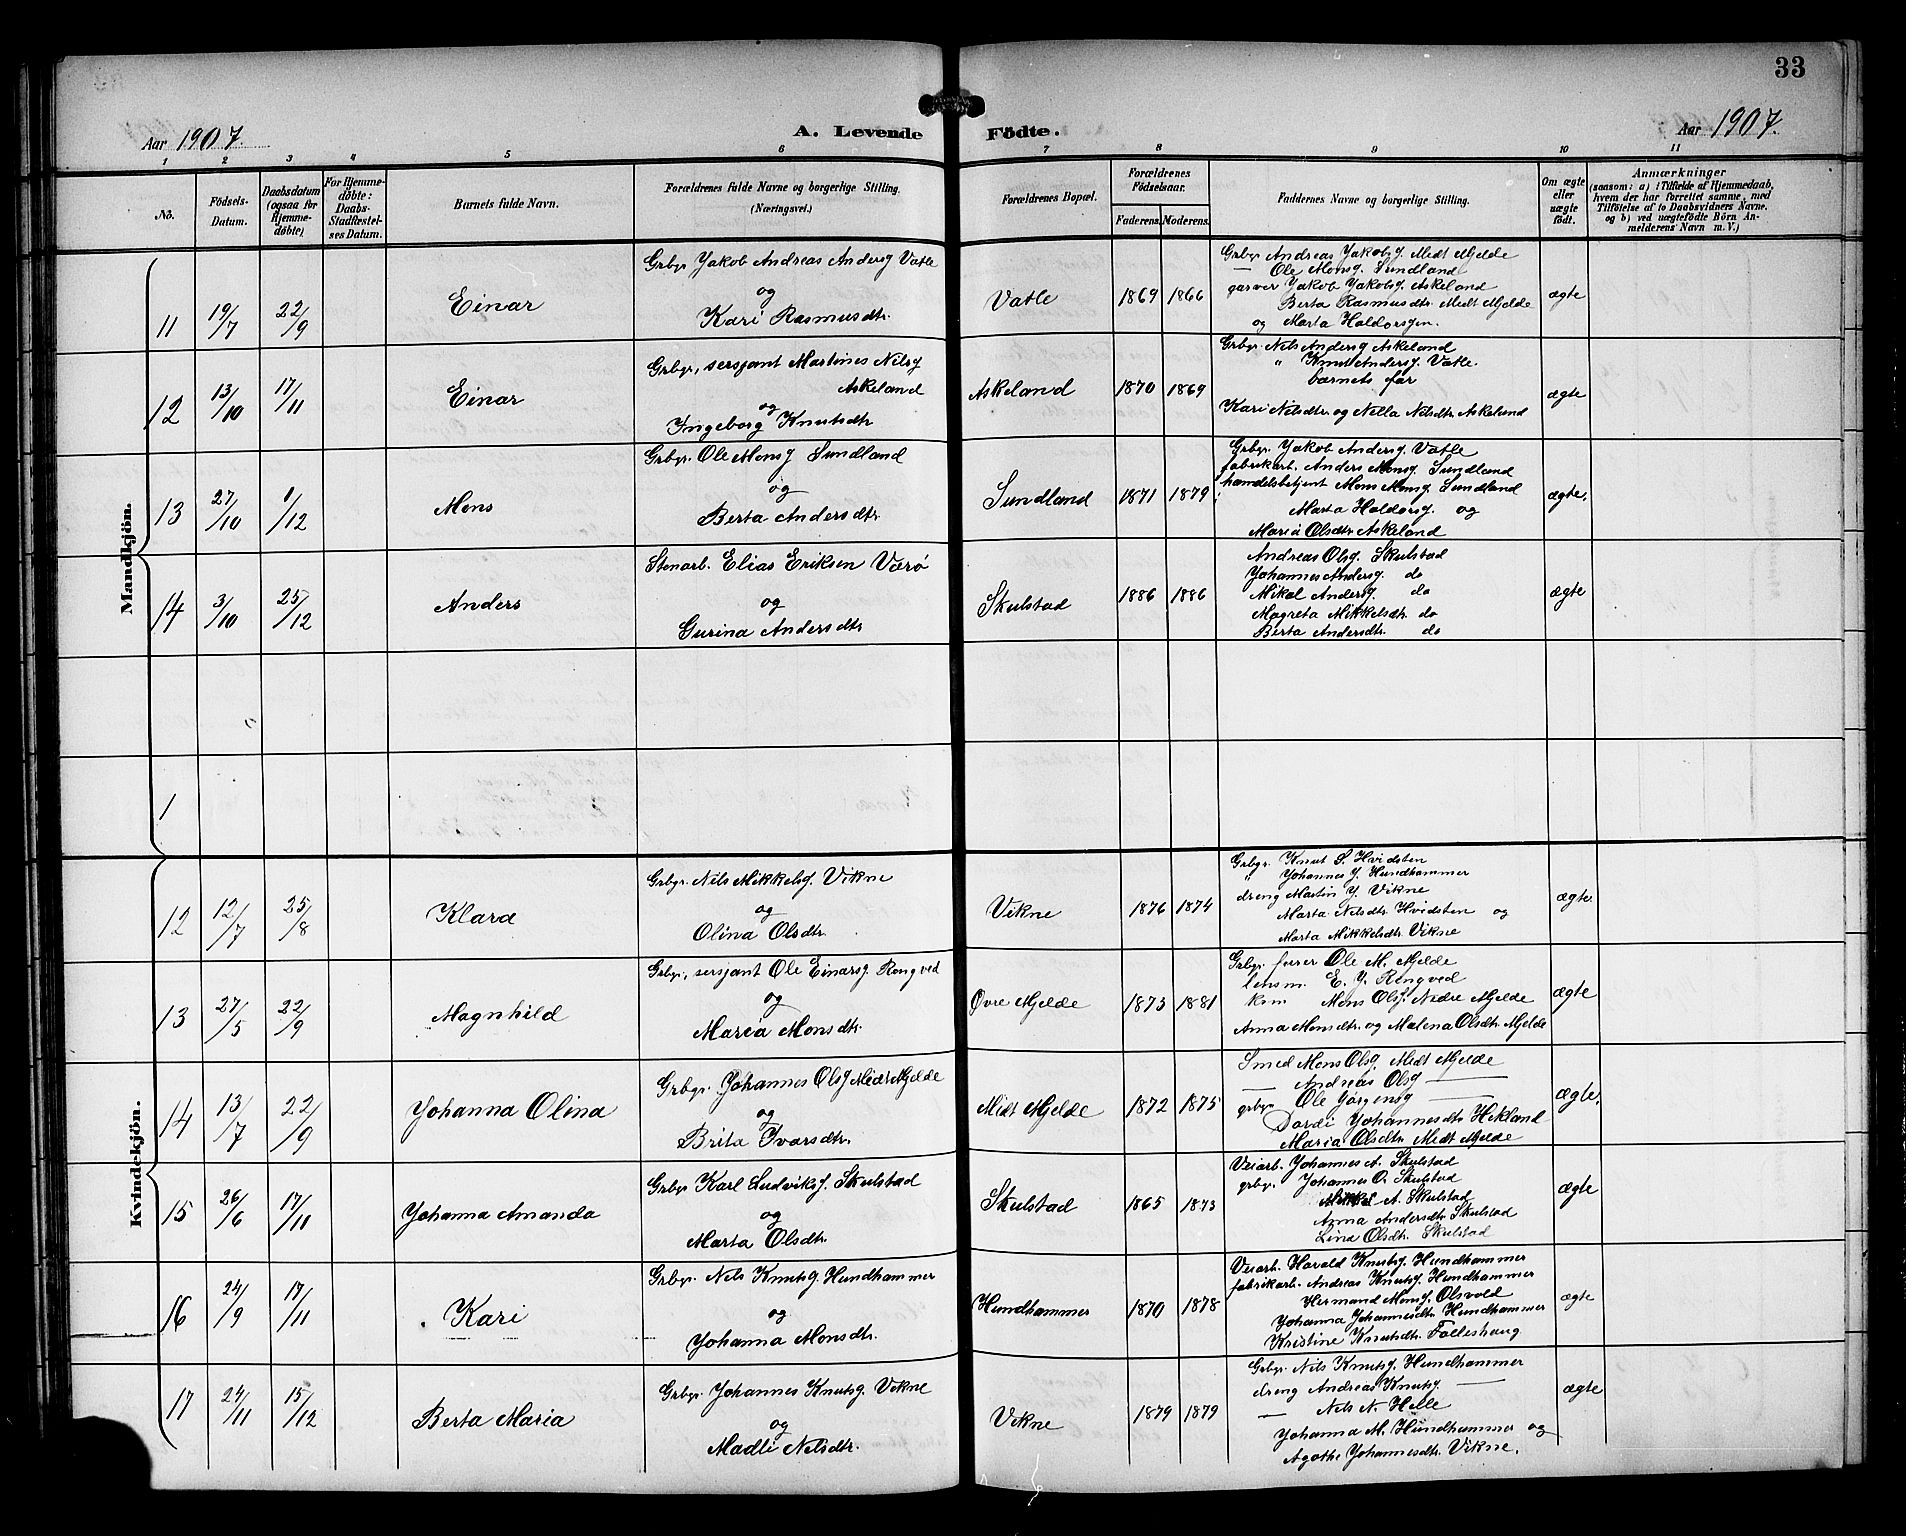 33
Aar 1907.
A. Levende Födte.
Aar 1907.
1 2 3 4 5 6 7 8 9 10 11
No.
Födsels-Datum.
Daabsdatum (ogsaa for Hjemme-döbte)
For Hjemme-döbte: Daabs-Stadfæstel-ses Datum.
Barnets fulde Navn.
Forældrenes fulde Navne og borgerlige Stilling.
(Næringsvei.)
Forældrenes Bopæl.
Forældrenes Födselsaar.
Faderens. Moderens.
Faddernes Navne og borgerlige Stilling.
Om ægte eller uægte födt.
Anmærkninger
(saasom: a) i Tilfælde af Hjemmedaab,
hvem der har forrettet samme, med
Tilföielse af to Daabsvidners Navne,
og b) ved uægtefödte Börn An-
melderens Navn m.V.)
Mandkjön.
11 19/7 22/9 Einar
Grbgr Yakob Andreas Andersg Vatle
og
Kari Rasmusdtr.
Vatle 1869 1866
Grbgr Andreas Yakobsg. Midt Mjelde
— Ole Monsg. Sundland
garver Yakob Yakobsg. Askeland
Berta Rasmusdtr. Midt Mjelde
og Marta Haldorsgen.
ægte
12 13/10 17/11 Einar
Grbgr, sersjant Martines Nilsg
Askeland
og
Ingeborg Knutsdtr
Askeland 1870 1869
Grbgr. Nils Andersg Askeland
" Knut Andersg. Vatle.
barnets far
Kari Nilsdtr. og Nella Nilsdtr. Askeland
ægte
13 27/10 1/12 Mons
Grbgr. Ole Monsg Sundland
og
Berta Andersdtr
Sundland 1871 1879
Grbgr. Yakob Andersg. Vatle
fabrikarb. Anders Monsg. Sundland
handelsbetjent Mons Monsg. Sundland
Marta Haldorsg. og
Maria Olsdtr. Askeland
ægte.
14 3/10 25/12 Anders
Stenarb. Elias Eriksen Værø
og
Gurina Andersdtr
Skulstad 1886 1886
Andreas Olsg. Skulstad
Yohannes Andersg. do
Mikal Andersg. do
Magreta Mikkelsdtr. do
Berta Andersdtr. do
ægte
1
Kvindekjön.
12 12/7 25/8 Klara
Grbgr. Nils Mikkelsg. Vikne
og
Olina Olsdtr.
Vikne 1876 1874
Grbgr. Knut S. Hvidsten
" Yohannes Y. Hundhammer
dreng Martin Y. Vikne
Marta Nilsdtr. Hvidsten og
Marta Mikkelsdtr. Vikne
ægte.
13 27/5 22/9 Magnhild
Grbgr, sersjant Ole Einarsg. Rongved
og
Maria Monsdtr.
Øvre Mjelde 1873 1881
Grbgr. forrer Ole M. Mjelde
lensm. E. Y. Rongved
ksm Mons Olsg. Nedre Mjelde
Anna Monsdtr. og Malena Olsdtr. Mjelde
ægte
14 13/7 22/9 Yohanna Olina
Grbgr. Yohannes Olsg Midt Mjelde
og
Brita Ivarsdtr.
Midt Mjelde 1872 1875
Smed Mons Olsg. Midt Mjelde
— Andreas Olsg —
grbgr Ole Yörgensg —
Dordi Yohannesdtr Hekland
Maria Olsdtr. Midt Mjelde
ægte.
15 26/6 17/11 Yohanna Amanda
Grbgr Karl Ludviksg. Skulstad
og
Marta Olsdtr.
Skulstad 1865 1873
Veiarb. Yohannes A. Skulstad
grbgr. Yohannes O. Skulstad
Mikkal A. Skulstad
Anna Andersdtr. Skulstad
Lina Olsdtr. Skulstad
ægte
16 24/9 17/11 Kari
Grbgr. Nels Knutsg. Hundhammer
og
Yohanna Monsdtr.
Hundhammer 1870 1878
Veiarb. Harald Knutsg. Hundhammer
fabrikarb. Andreas Knutsg. Hundhammer
Hermand Monsg. Olsvold
Yohanna Yohannesdtr. Hundhammer
Kristine Knutsdtr. Falleshaug
ægte
17 24/11 15/12 Berta Maria
Grbgr. Yohannes Knutsg. Vikne
og
Madli Nelsdtr.
Vikne 1879 1879
Grbgr. Nils Knutsg. Hundhammer
dreng Andreas Knutsg. —
— Nels N. Helle
Yohanna M. Hundhammer og
Agathe Yohannesdtr. Vikne.
ægte